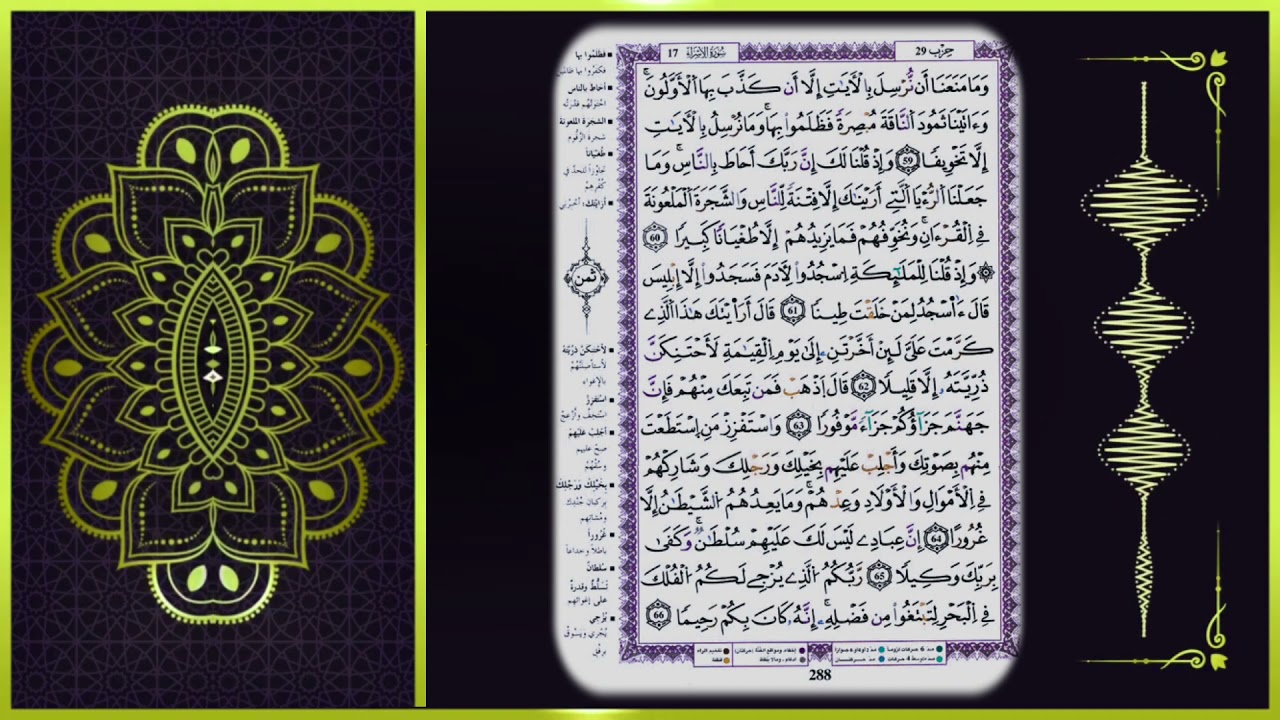 حِزْب 29
سُورَةُ الإِسْرَاءِ 17
وَمَا مَنَعَنَا أَن نُّرْسِلَ بِالْأَيَٰتِ إِلَّا أَن كَذَّبَ بِهَا اَلْأَوَّلُونَۖ
وَءَاتَيْنَا ثَمُودَ اَلنَّاقَةَ مُبْصِرَةً فَظَلَمُواْ بِهَاۖ وَمَا نُرْسِلُ بِالْأَيَٰتِ
إِلَّا تَخْوِيفاً 59 وَإِذْ قُلْنَا لَكَ إِنَّ رَبَّكَ أَحَاطَ بِالنَّاسِۖ وَمَا
جَعَلْنَا اَلرُّءْيَا اَلَّتِے أَرَيْنَٰكَ إِلَّا فِتْنَةً لِّلنَّاسِ وَالشَّجَرَةَ اَلْمَلْعُونَةَ
فِے اِلْقُرْءَانِۖ وَنُخَوِّفُهُمْ فَمَا يَزِيدُهُمْ إِلَّا طُغْيَٰناً كَبِيراً 60
۞ وَإِذْ قُلْنَا لِلْمَلَٰٓئِكَةِ اِسْجُدُواْ لِأَدَمَ فَسَجَدُواْ إِلَّا إِبْلِيسَ
قَالَ ءَآسْجُدُ لِمَنْ خَلَقْتَ طِيناً 61 قَالَ أَرَٰيْتَكَ هَٰذَا اَلَّذِے
كَرَّمْتَ عَلَيَّ لَئِنْ أَخَّرْتَنِۦ إِلَىٰ يَوْمِ اِلْقِيَٰمَةِ لَأَحْتَنِكَنَّ
ذُرِّيَّتَهُۥ إِلَّا قَلِيلاً 62 قَالَ اَذْهَبْ فَمَن تَبِعَكَ مِنْهُمْ فَإِنَّ
جَهَنَّمَ جَزَآؤُكُمْ جَزَآءً مَّوْفُوراً 63 وَاسْتَفْزِزْ مَنِ اِسْتَطَعْتَ
مِنْهُم بِصَوْتِكَ وَأَجْلِبْ عَلَيْهِم بِخَيْلِكَ وَرَجْلِكَ وَشَارِكْهُمْ
فِے اِلْأَمْوَٰلِ وَالْأَوْلَٰدِ وَعِدْهُمْۖ وَمَا يَعِدُهُمُ اُلشَّيْطَٰنُ إِلَّا
غُرُوراً 64 إِنَّ عِبَادِے لَيْسَ لَكَ عَلَيْهِمْ سُلْطَٰنٌۖ وَكَفَىٰ
بِرَبِّكَ وَكِيلاً 65 رَّبُّكُمُ اُلَّذِے يُزْجِے لَكُمُ اُلْفُلْكَ
فِے اِلْبَحْرِ لِتَبْتَغُواْ مِن فَضْلِهِۦۖ إِنَّهُۥ كَانَ بِكُمْ رَحِيماً 66
فظلموا بها
فكفروا بها ظالمين
أحاط بالناس
احتوتهم قدرته
الشجرة الملعونة
شجرة الزقوم
طغيانا
تجاوزا للحد في
كفرهم
أرايتك: أخبرني
ثمن
لأحتنكن ذريته
لأستأصلنهم
بالإغواء
استفزز
استخف وأزعج
أجلب عليهم
صح عليهم
وسقهم
بخيلك ورجلك
بركبان جندك
ومشاتهم
غرورا
باطلا وخداعا
سلطان
تسلط وقدرة
على إغوائهم
يزجي
يجري ويسوق
برفق
288